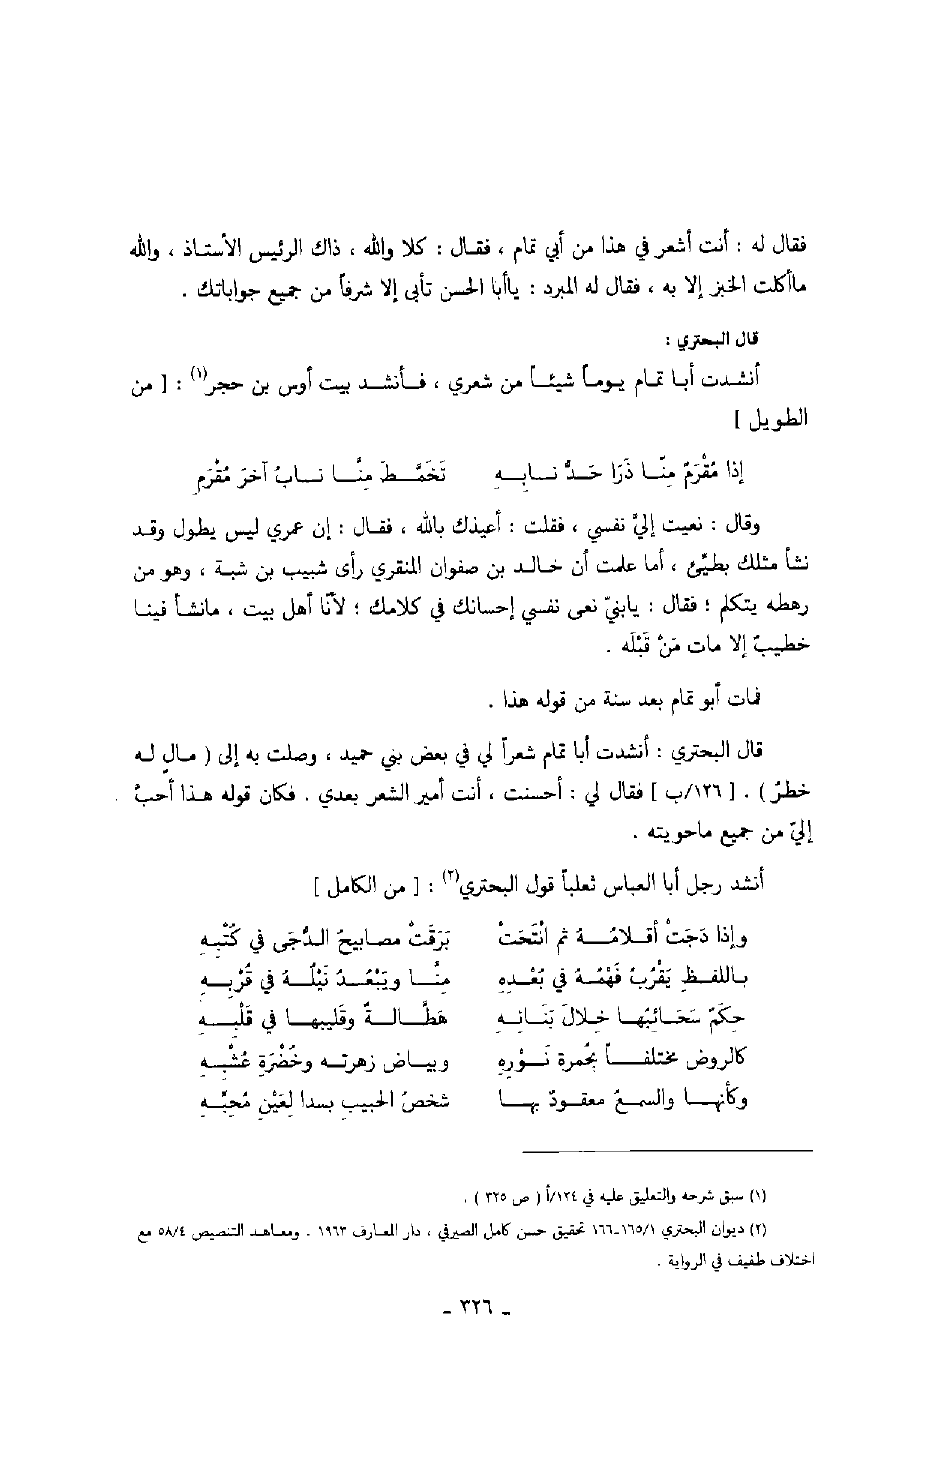 فقال له : أنت أشعر في هذا من أبي تمام ، فقال : كلا والله ، ذاك الرئيس الأستاذ ، والله
ماأكلت الخبز إلا به ، فقال له المبرد : ياأبا الحسن تأبى إلا شرفاً من جميع جواباتك .
قال البحتري :
أنشدت أبا تمام يوماً شيئاً من شعري ، فأنشد بيت أوس بن حجر(١) : [ من
الطويل ]
إذا مُقْرَمٌ مِنَّا ذَرَا حَدُّ نابِهِ تَخَمَّطَ مِنَّا نابُ آخرَ مُقْرَمِ
وقال : نعيت إليّ نفسي ، فقلت : أعيذك بالله ، فقال : إن عمري ليس يطول وقد
نشأ مثلك بطيّئ ، أما علمت أن خالد بن صفوان المنقري رأى شبيب بن شبة ، وهو من
رهطه يتكلم ؛ فقال : يابنيّ نعى نفسي إحسانك في كلامك ؛ لأنّا أهل بيت ، مانشأ فينا
خطيبٌ إلا مات مَنْ قَبْلَه .
فمات أبو تمام بعد سنة من قوله هذا .
قال البحتري : أنشدت أبا تمام شعراً لي في بعض بني حميد ، وصلت به إلى ( مالٍ له
خطرٌ ) . [ ١٢٦/ب ] فقال لي : أحسنت ، أنت أمير الشعر بعدي . فكان قوله هذا أحبَّ
إليّ من جميع ماحويته .
أنشد رجل أبا العباس ثعلباً قول البحتري(٢) : [ من الكامل ]
وإذا دَجَتْ أقلامُهُ ثم انْتَحَتْ بَرَقَتْ مصابيحُ الدُّجَى في كُتْبِهِ
باللفظِ يَقْرُبُ فَهْمُهُ في بُعْدِهِ منَّا ويَبْعُدُ نَيْلُهُ في قُرْبِهِ
حِكَمٌ سَحَائبُها خِلالَ بَنَانِهِ هَطَّالَةٌ وقَلِيبها في قَلْبِهِ
كالروض مختلفاً بحُمرة نَوْرِهِ وبياض زهرته وخُضْرَةِ عُشْبِهِ
وكأنها والسمعُ معقودٌ بها شخصُ الحبيبِ بَدا لعَيْنِ مُحِبِّهِ
(١) سبق شرحه والتعليق عليه في ١٢٤/أ ( ص ٣٢٥ ) .
(٢) ديوان البحتري ١٦٥/١-١٦٦ تحقيق حسن كامل الصيرفي ، دار المعارف ١٩٦٣ . ومعاهد التنصيص ٥٨/٤ مع
اختلاف طفيف في الرواية .
ـ ٣٢٦ ـ